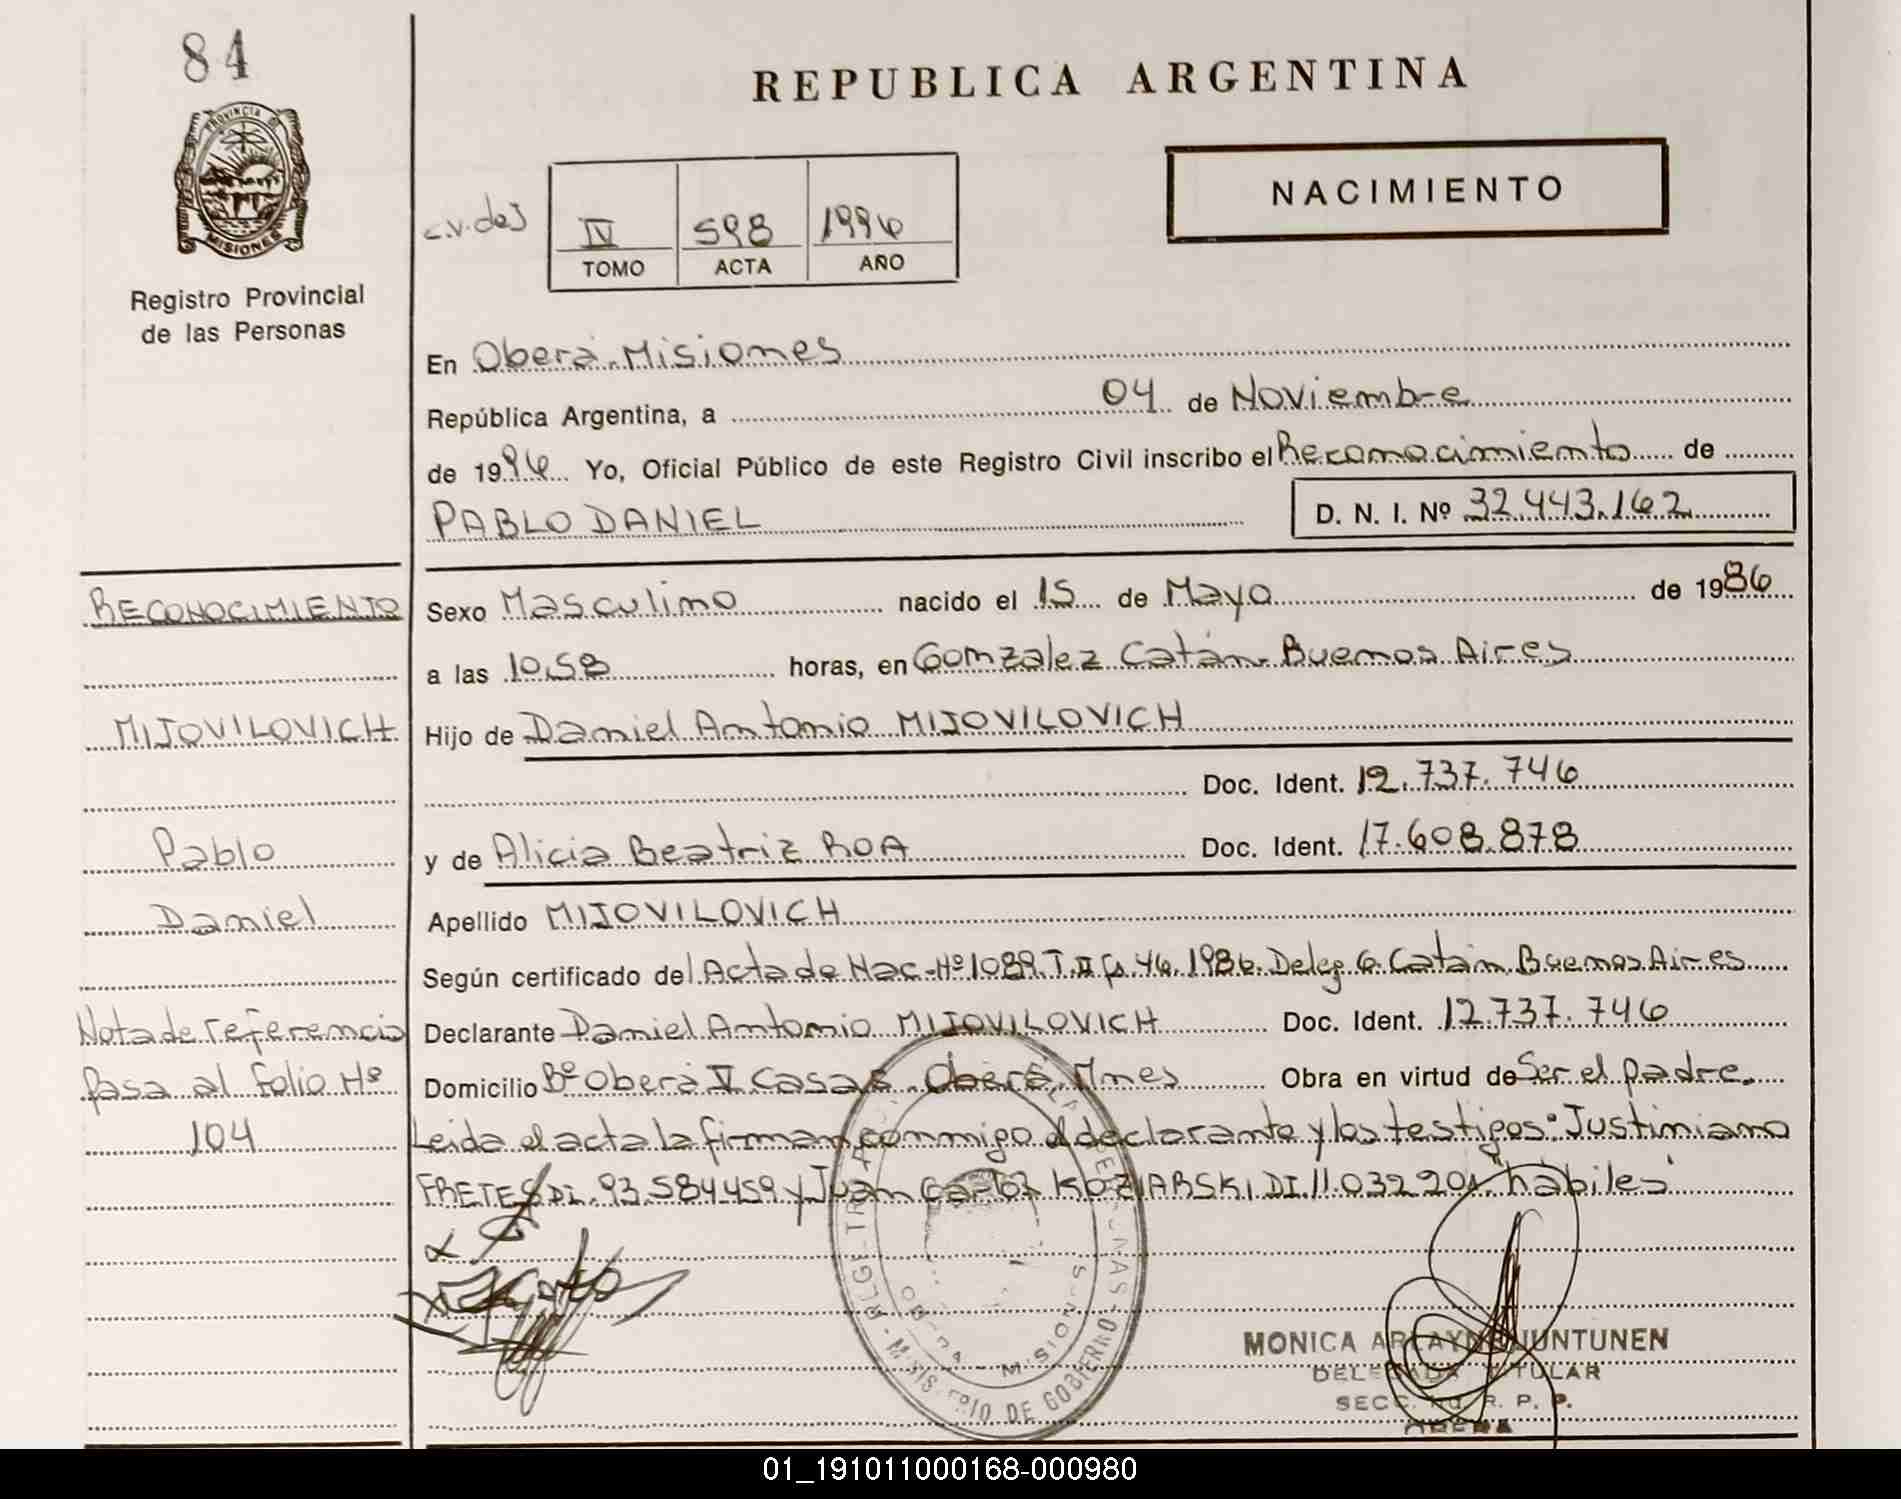 84
PROVINCIA DE
MISIONES
Registro Provincial
de las Personas
REPUBLICA ARGENTINA
NACIMIENTO
IV 598 1996
TOMO ACTA AÑO
En Oberá. Misiones
República Argentina, a 04 de Noviembre
de 1996 Yo, Oficial Público de este Registro Civil inscribo el Reconocimiento de
PABLO DANIEL D. N. I. Nº 32.443.162
RECONOCIMIENTO
MIJOVILOVICH
Pablo
Daniel
Nota de referencia
pasa al folio Nº
104
Sexo Masculino nacido el 15 de Mayo de 1986
a las 10,58 horas, en Gonzalez Catán. Buenos Aires
Hijo de Daniel Antonio MIJOVILOVICH
Doc. Ident. 12.737.746
y de Alicia Beatriz ROA Doc. Ident. 17.608.878
Apellido MIJOVILOVICH
Según certificado del Acta de Nac. Nº 1089. T. II Fº. 46. 1986. Deleg G. Catán. Buenos Aires
Declarante Daniel Antonio MIJOVILOVICH Doc. Ident. 12.737.746
Domicilio Bº Oberá V Casas. Oberá. Mnes Obra en virtud de Ser el padre.
Leida el acta la firman conmigo el declarante y los testigos: Justiniano
FRETES DI. 93.584459 y Juan Carlos KOZIARSKI DI. 11.032.201. habiles
MINISTERIO DE GOBIERNO
MISIONES
MONICA JUNTUNEN
DELEGADA TITULAR
SECC. R. P. P.
OBERA
01_191011000168-000980